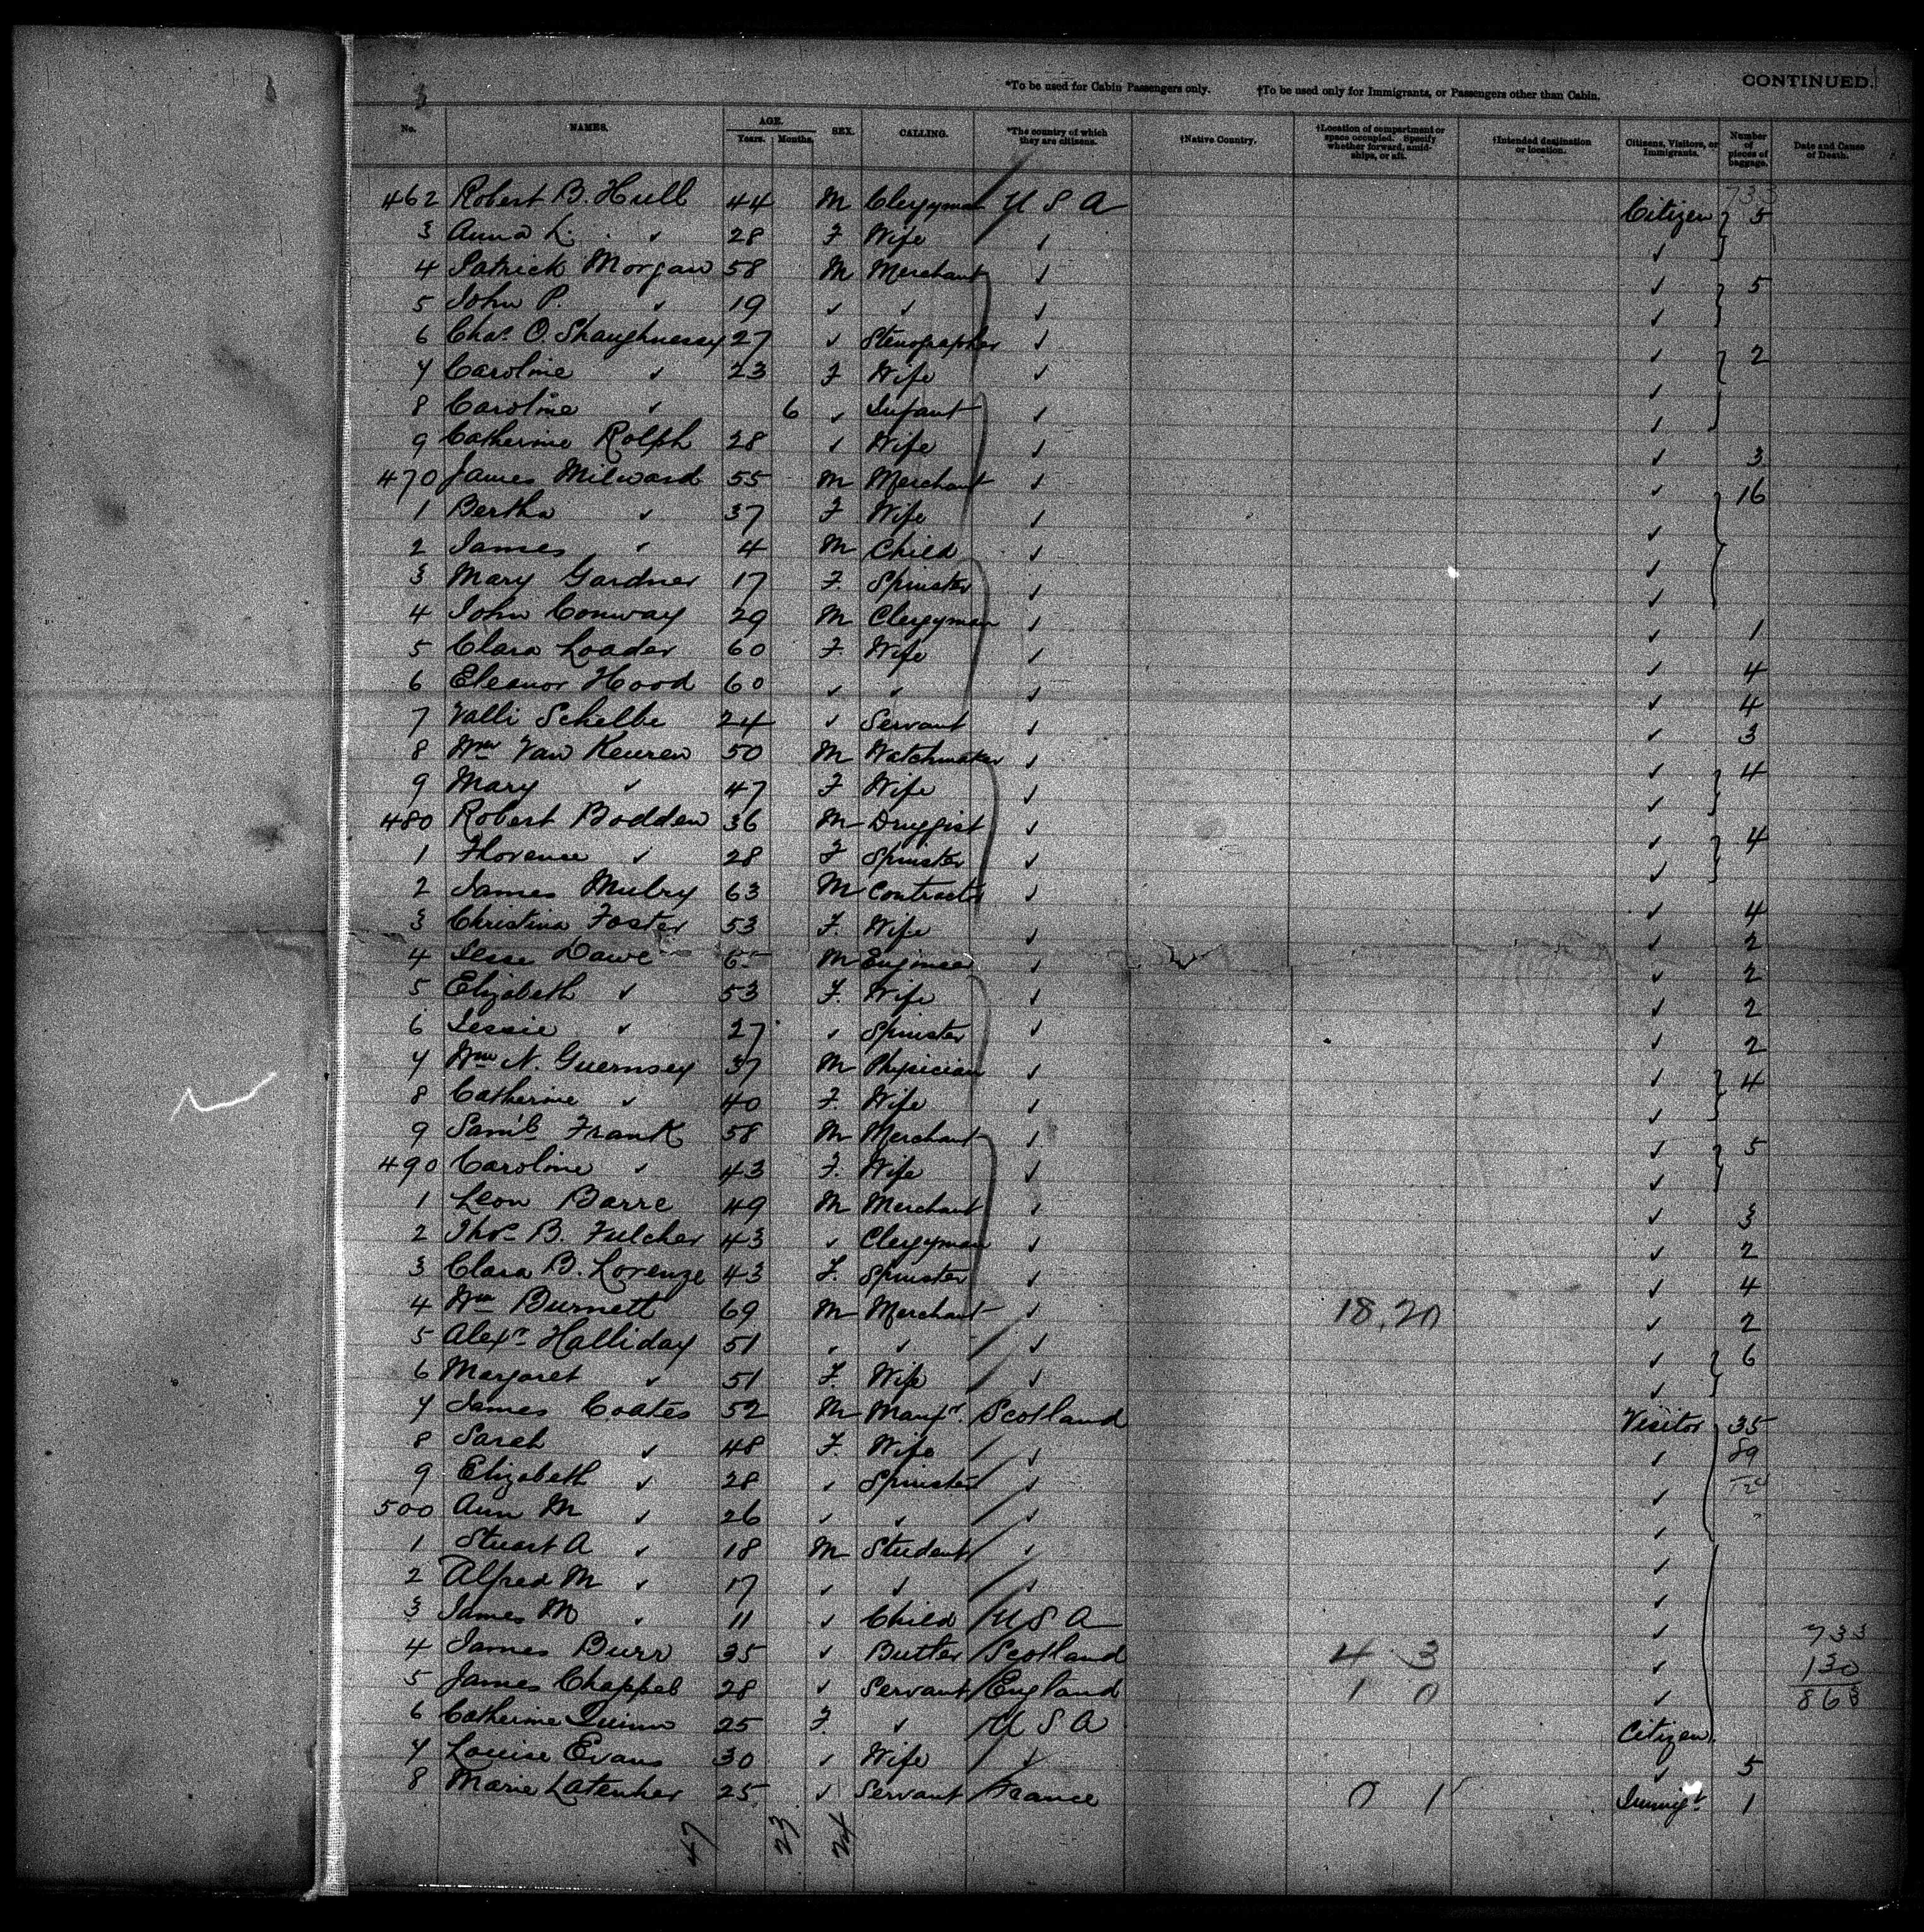 *To be used for Cabin Passengers only. †To be used only for Immigrants, or Passengers other than Cabin. CONTINUED.
No. NAMES. AGE. Years. Months. SEX. CALLING. *The country of which they are citizens. †Native Country. †Location of compartment or space occupied. Specify whether forward, amidships, or aft. †Intended destination or location. Citizens, Visitors, or Immigrants. Number of pieces of baggage. Date and Cause of Death.
733
462 Robert B. Hull 44 M Clergyman U S A Citizen 5
3 Anna L. ✓ 28 F Wife ✓ ✓
4 Patrick Morgan 58 M Merchant ✓ ✓ 5
5 John P. ✓ 19 ✓ ✓ ✓ ✓
6 Chas. O. Shaughnessy 27 ✓ Stenographer ✓ ✓ 2
7 Caroline ✓ 23 F Wife ✓ ✓
8 Caroline ✓ 6 ✓ Infant ✓ ✓
9 Catherine Rolph 28 ✓ Wife ✓ ✓ 3
470 James Milward 55 M Merchant ✓ ✓ 16
1 Bertha ✓ 37 F Wife ✓ ✓
2 James ✓ 4 M Child ✓ ✓
3 Mary Gardner 17 F. Spinster ✓ ✓
4 John Conway 29 M Clergyman ✓ ✓ 1
5 Clara Loader 60 F. Wife ✓ ✓ 4
6 Eleanor Hood 60 ✓ ✓ ✓ ✓ 4
7 Valli Schelbe 24 ✓ Servant ✓ ✓ 3
8 Wm Van Keuren 50 M Watchmaker ✓ ✓ 4
9 Mary ✓ 47 F Wife ✓ ✓
480 Robert Bodden 36 M Druggist ✓ ✓ 4
1 Florence ✓ 28 F Spinster ✓ ✓
2 James Mulry 63 M Contractor ✓ ✓ 4
3 Christina Foster 53 F. Wife ✓ ✓ 2
4 Jesse Dawe 65 M Engineer ✓ ✓ 2
5 Elizabeth ✓ 53 F. Wife ✓ ✓ 2
6 Jessie ✓ 27 ✓ Spinster ✓ ✓ 2
7 Wm N. Guernsey 37 M Physician ✓ ✓ 4
8 Catherine ✓ 40 F. Wife ✓ ✓
9 Saml. Frank 58 M Merchant ✓ ✓ 5
490 Caroline ✓ 43 F. Wife ✓ ✓
1 Leon Barre 49 M Merchant ✓ ✓ 3
2 Thos. B. Fulcher 43 ✓ Clergyman ✓ ✓ 2
3 Clara B. Lorenze 43 F. Spinster ✓ ✓ 4
4 Wm Burnett 69 M Merchant ✓ 18.20 ✓ 2
5 Alexr. Halliday 51 ✓ ✓ ✓ ✓ 6
6 Margaret ✓ 51 F. Wife ✓ ✓
7 James Coates 52 M Manfr. Scotland Visitor 35
8 Sarah ✓ 48 F. Wife ✓ ✓ 89
9 Elizabeth ✓ 28 ✓ Spinster ✓ ✓
500 Ann M ✓ 26 ✓ ✓ ✓ ✓
1 Stuart A ✓ 18 M Student ✓ ✓
2 Alfred M ✓ 17 ✓ ✓ ✓ ✓
3 James M ✓ 11 ✓ Child U S A ✓ 733
4 James Burr 35 ✓ Butler Scotland 4 3 ✓ 130
5 James Chappel 28 ✓ Servant England 1 0 ✓ 863
6 Catherine Quinn 25 F. ✓ U S A Citizen
7 Louise Evans 30 ✓ Wife ✓ ✓ 5
8 Marie 25 ✓ Servant France 0 1 Immigt 1
47 23 24